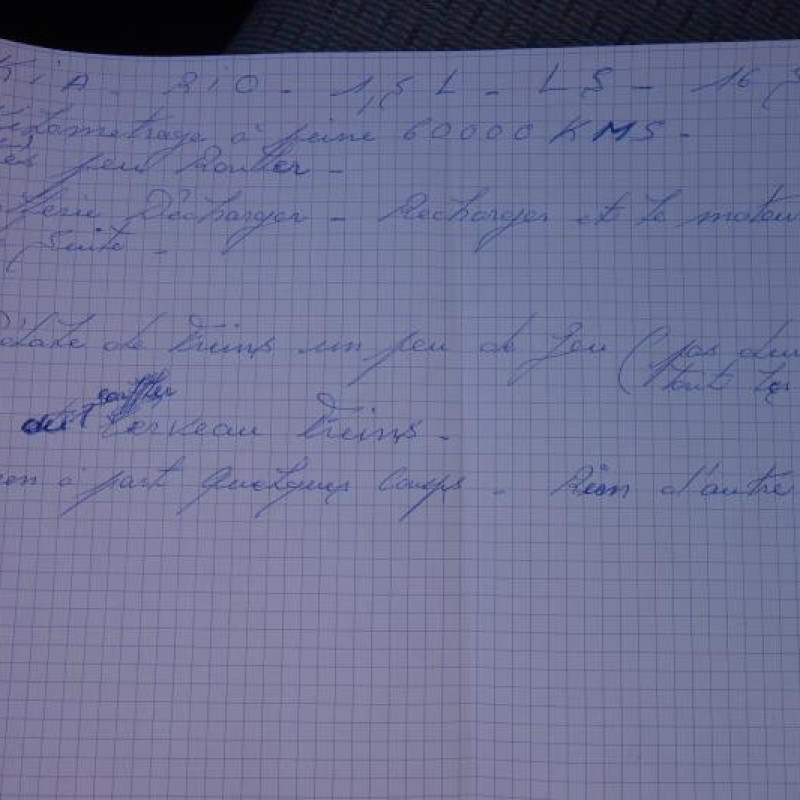 KIA - RIO - 1,5 L - LS - 16 S
Kilometrage à peine 60000 KMS -
peu Rouller -
Décharger - Recharger et le moteur
suite -
de Freins un peu de Jeu (pas du
tout
souffler
Cerveau Freins -
à part quelques Coups - Rien d'autre